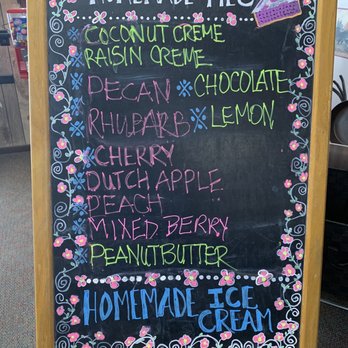 HOMEMADE PIES
COCONUT CREME
RAISIN CREME
PECAN * CHOCOLATE
RHUBARB * LEMON
* CHERRY
DUTCH APPLE
PEACH
MIXED BERRY
PEANUTBUTTER
HOMEMADE ICE
CREAM